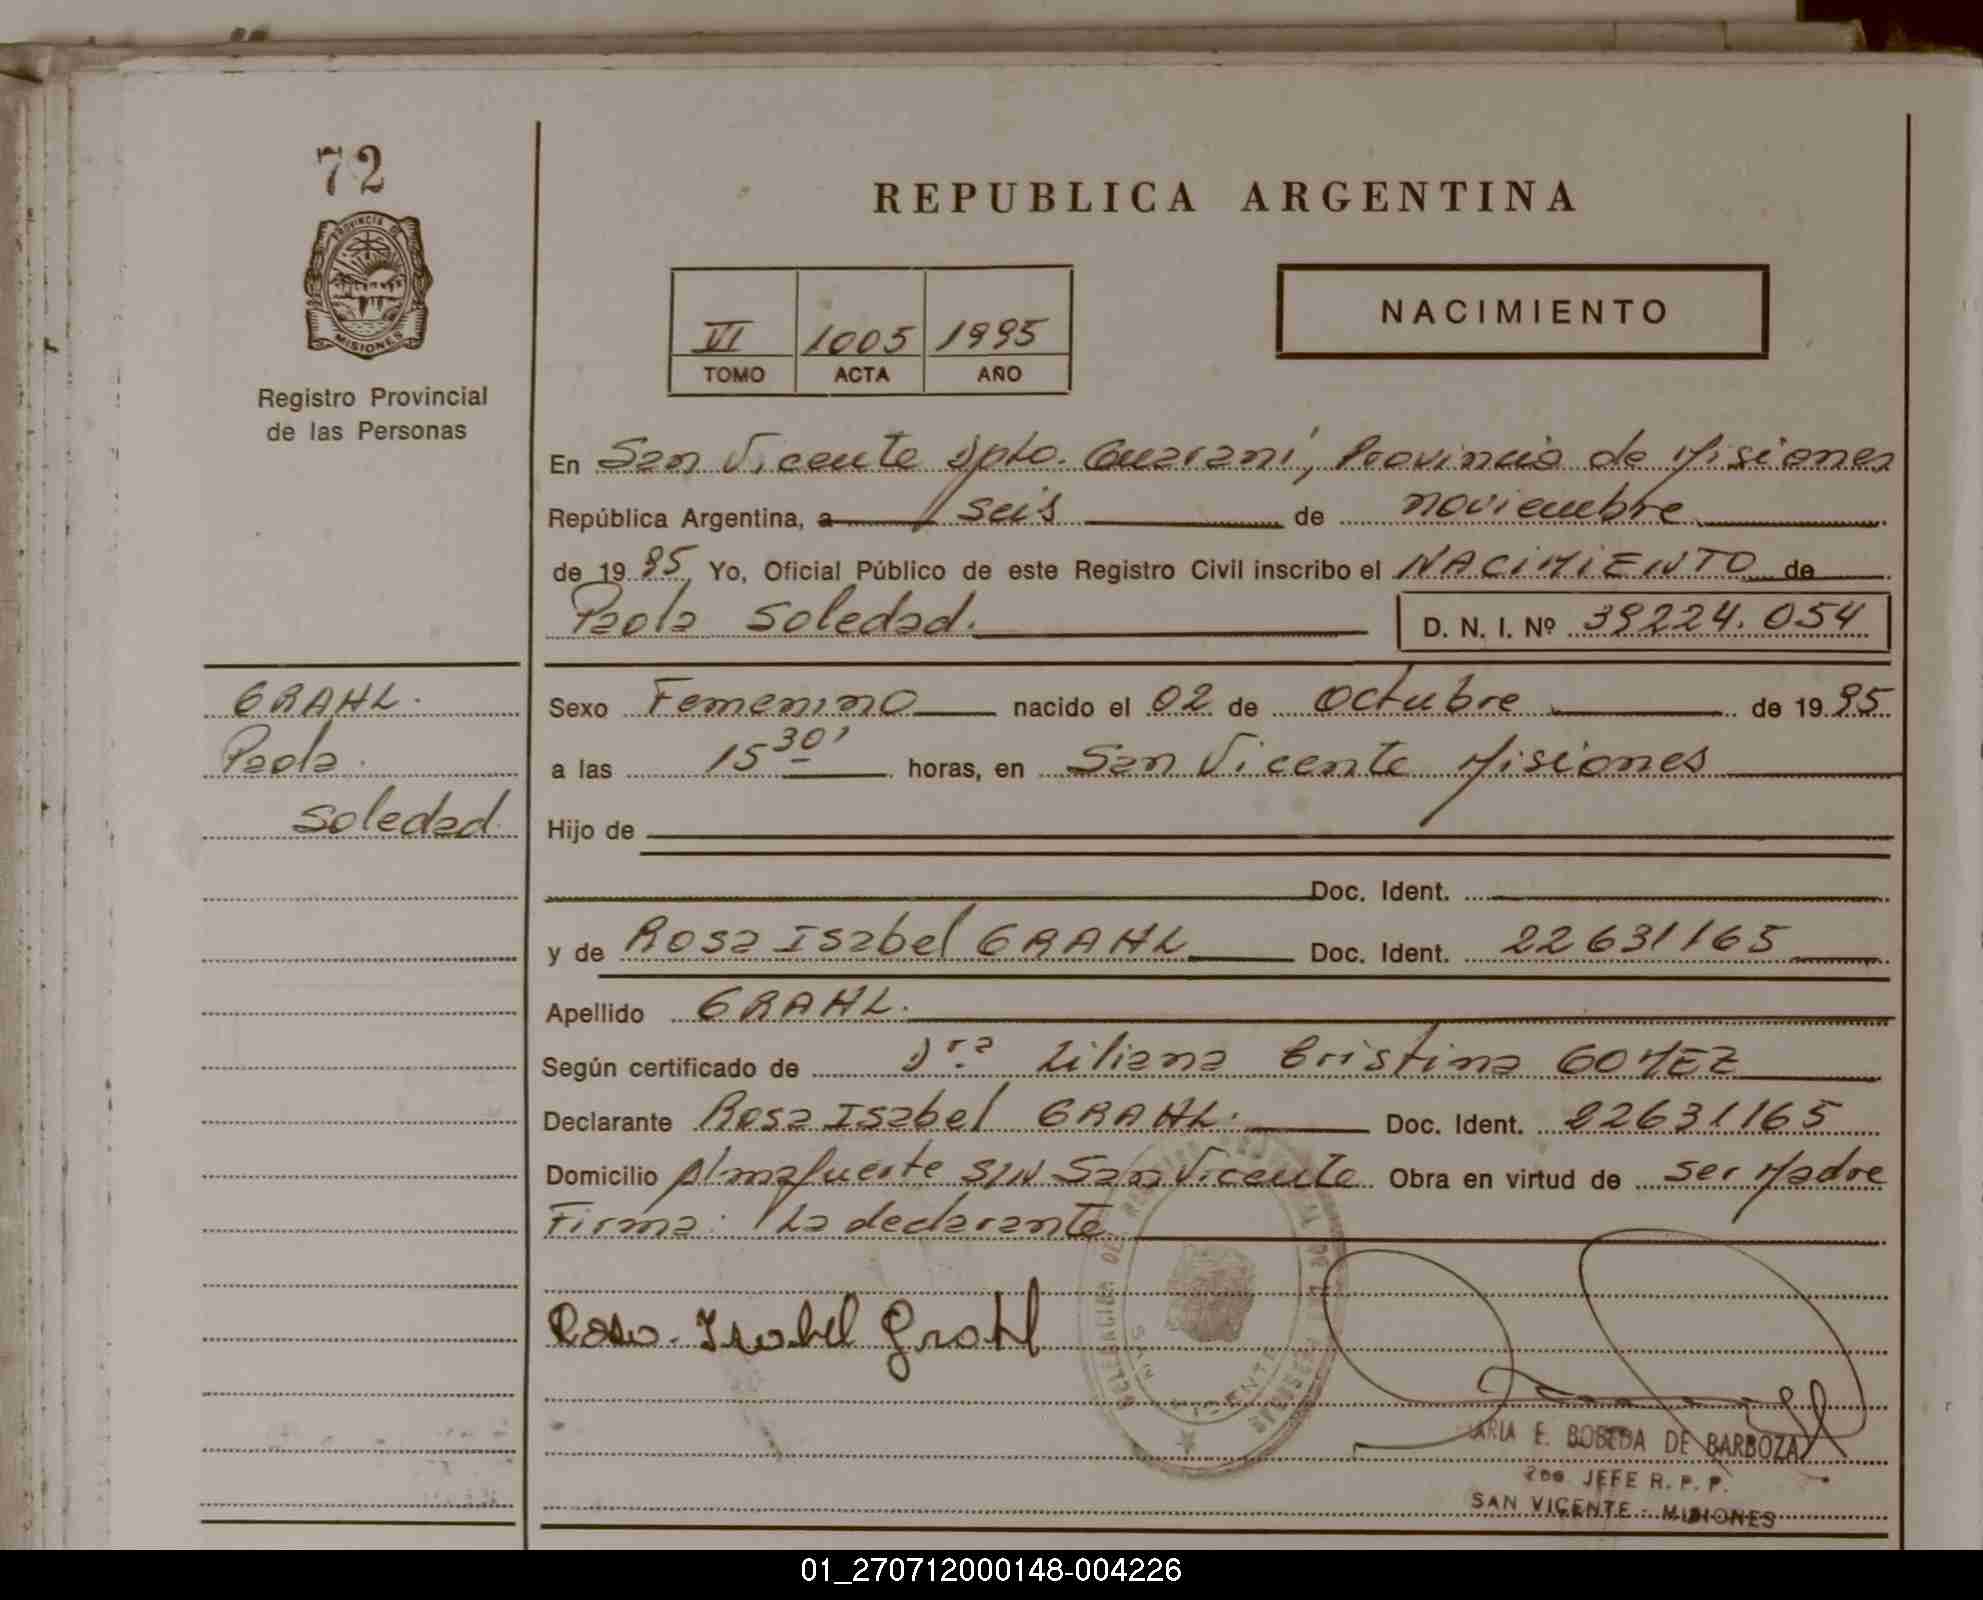 72
PROVINCIA DE
MISIONES
Registro Provincial
de las Personas
REPUBLICA ARGENTINA
VI 1005 1995
TOMO ACTA AÑO
NACIMIENTO
En San Vicente Dpto. Guaraní, Provincia de Misiones
República Argentina, a seis de noviembre
de 1995 Yo, Oficial Público de este Registro Civil inscribo el NACIMIENTO de
Paola Soledad. D. N. I. Nº 39224.054
GRAHL.
Paola
Soledad
Sexo Femenino nacido el 02 de Octubre de 1995
a las 15 30' horas, en San Vicente Misiones
Hijo de
Doc. Ident.
y de Rosa Isabel GRAHL Doc. Ident. 22631165
Apellido GRAHL.
Según certificado de Dra Liliana Cristina GOMEZ
Declarante Rosa Isabel GRAHL. Doc. Ident. 22631165
Domicilio Almafuerte S/N San Vicente Obra en virtud de ser Madre
Firma: La declarante
Rosa Isabel Grahl
SAN VICENTE
ARIA E. BOBEDA DE BARBOZA
2do. JEFE R. P. P.
SAN VICENTE - MISIONES
01_270712000148-004226